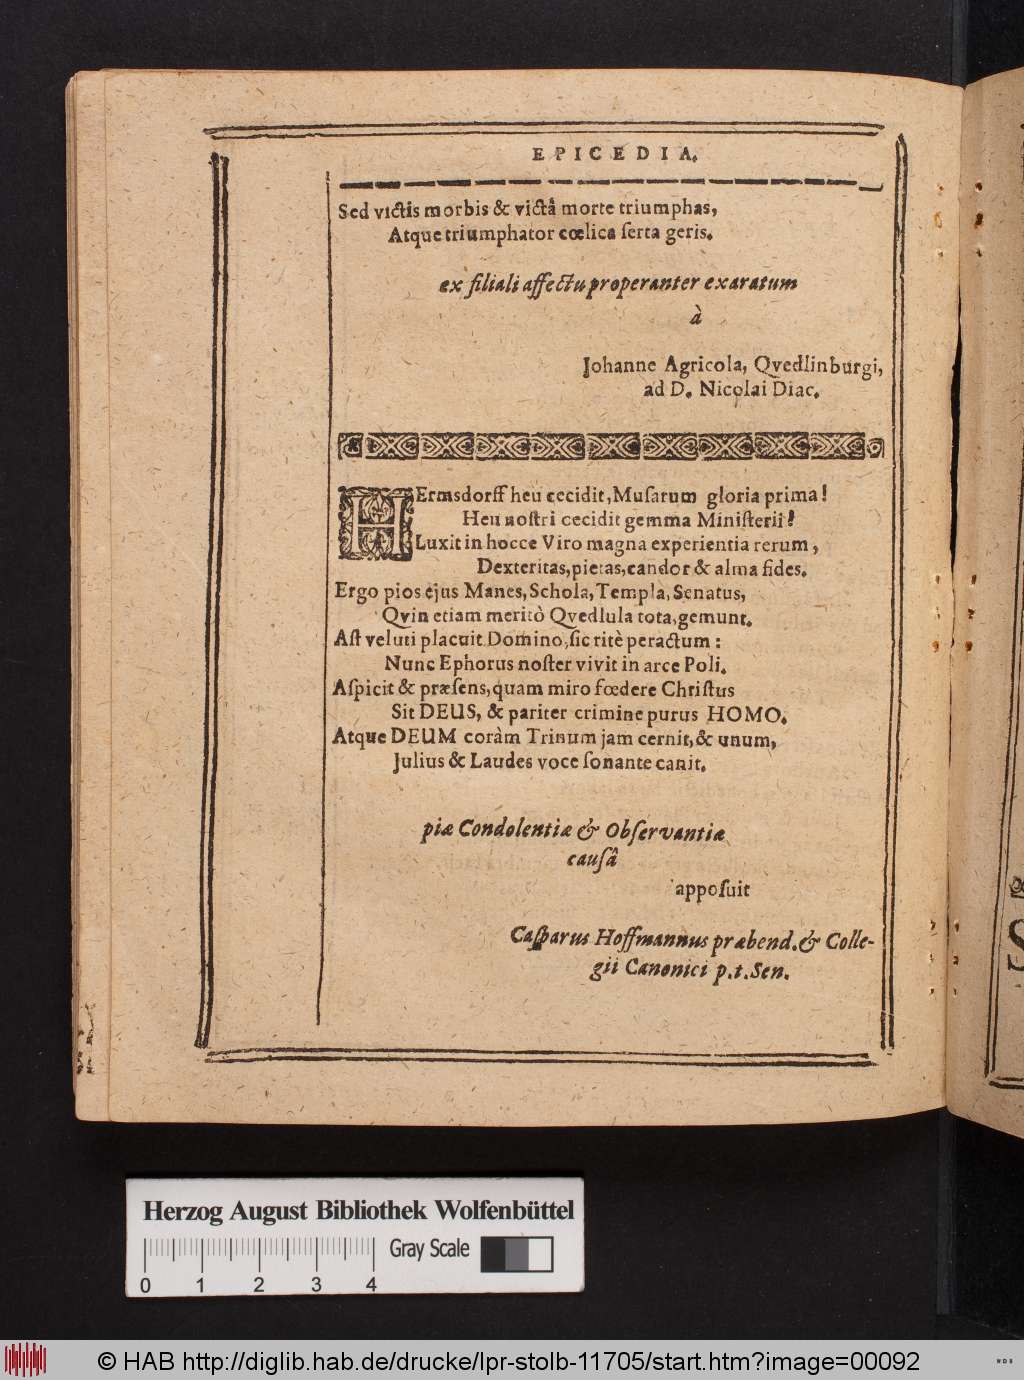 EPICEDIA.
Sed victis morbis & victâ morte triumphas,
Atque triumphator cœlica ſerta geris.
ex filiali affectu properanter exaratum
à
Johanne Agricola, Qvedlinburgi,
ad D. Nicolai Diac.
HErmsdorff heu cecidit, Muſarum gloria prima!
Heu noſtri cecidit gemma Miniſterii!
Luxit in hocce Viro magna experientia rerum,
Dexteritas, pietas, candor & alma fides.
Ergo pios ejus Manes, Schola, Templa, Senatus,
Qvin etiam meritò Qvedlula tota, gemunt.
Aſt veluti placuit Domino, ſic ritè peractum:
Nunc Ephorus noſter vivit in arce Poli.
Aſpicit & præſens, quam miro fœdere Chriſtus
Sit DEUS, & pariter crimine purus HOMO.
Atque DEUM coràm Trinum jam cernit, & unum,
Julius & Laudes voce ſonante canit.
piæ Condolentiæ & Obſervantiæ
causâ
appoſuit
Caſparus Hoffmannus præbend. & Colle-
gii Canonici p. t. Sen.
Herzog August Bibliothek Wolfenbüttel
Gray Scale
0 1 2 3 4
© HAB http://diglib.hab.de/drucke/lpr-stolb-11705/start.htm?image=00092